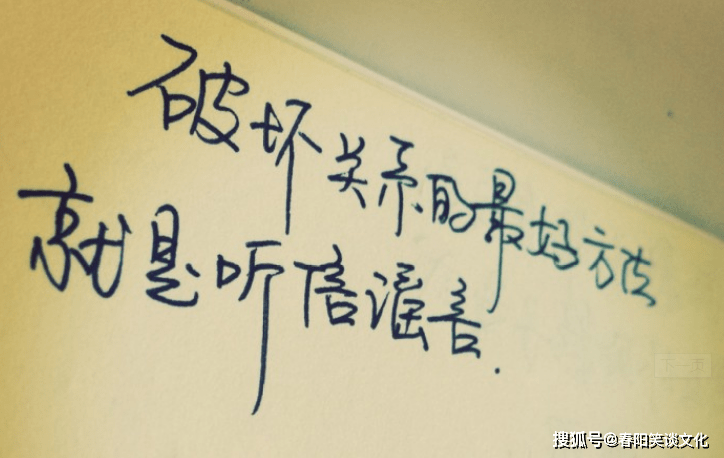 破坏关系的最好方法
就是听信谣言.
下一页
搜狐号@春阳笑谈文化